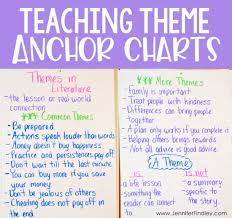 TEACHING THEME
ANCHOR CHARTS
Themes in
Literature
- the lesson or real-world
connection
Common Themes
- Be prepared
- Actions speak louder than words
- Money doesn't buy happiness
- Practice and persistence pay off
- Don't wait till the last minute
- You can buy more if you save
your money
- Don't be jealous of others
- Cheating does not pay off in
the end
More Themes
- Family is important
- Treat people with kindness
- Differences can bring people
together
- A plan only works if you complete it
- Helping others brings rewards
- Not all advice is good advice
A Theme
is
a life lesson
something the
reader can
connect to
is not
- a summary
- specific to
the story
www.JenniferFindley.com